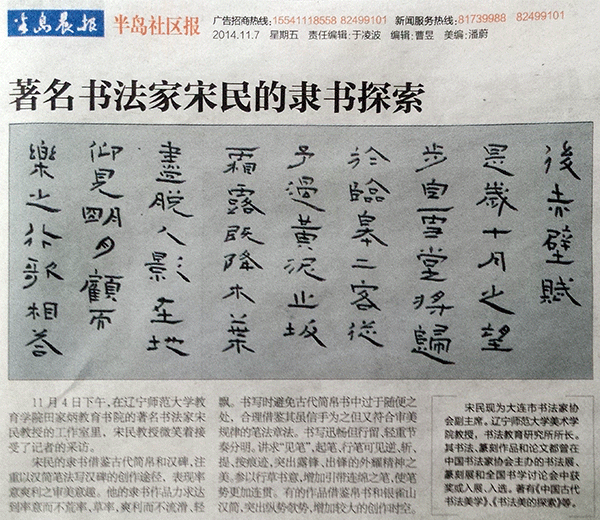 半岛晨报
半岛社区报
广告招商热线：15541118558 82499101 新闻服务热线：81739988 82499101
2014.11.7 星期五 责任编辑：于凌波 编辑：曹昱 美编：潘蔚
著名书法家宋民的隶书探索
後赤壁賦
是歲十月之望
步自雪堂將歸
於臨皋二客從
予過黃泥之坂
霜露既降木葉
盡脱人影在地
仰見明月顧而
樂之行歌相答
11月4日下午，在辽宁师范大学教
育学院田家炳教育书院的著名书法家宋
民教授的工作室里，宋民教授微笑着接
受了记者的采访。
宋民的隶书借鉴古代简帛和汉碑，注
重以汉简笔法写汉碑的创作途径，表现率
意爽利之审美意趣。他的隶书作品力求达
到率意而不荒率，草率，爽利而不流滑，轻
飘。书写时避免古代简帛书中过于随便之
处，合理借鉴其虽信手为之但又符合审美
规律的笔法章法。书写迅畅但行留，轻重节
奏分明。讲求“见笔”，起笔、行笔可见逆、斩、
提、按痕迹，突出露锋、出锋的外耀精神之
美。参以行草书意，增加引带连绵之笔，使笔
势更加连贯。有的作品借鉴帛书和银雀山
汉简，突出纵势欹势，增加较大的创作时空。
宋民现为大连市书法家协
会副主席。辽宁师范大学美术学
院教授，书法教育研究所所长。
其书法、篆刻作品和论文都曾在
中国书法家协会主办的书法展、
篆刻展和全国书学讨论会中获
奖或入展、入选。著有《中国古代
书法美学》、《书法美的探索》等。